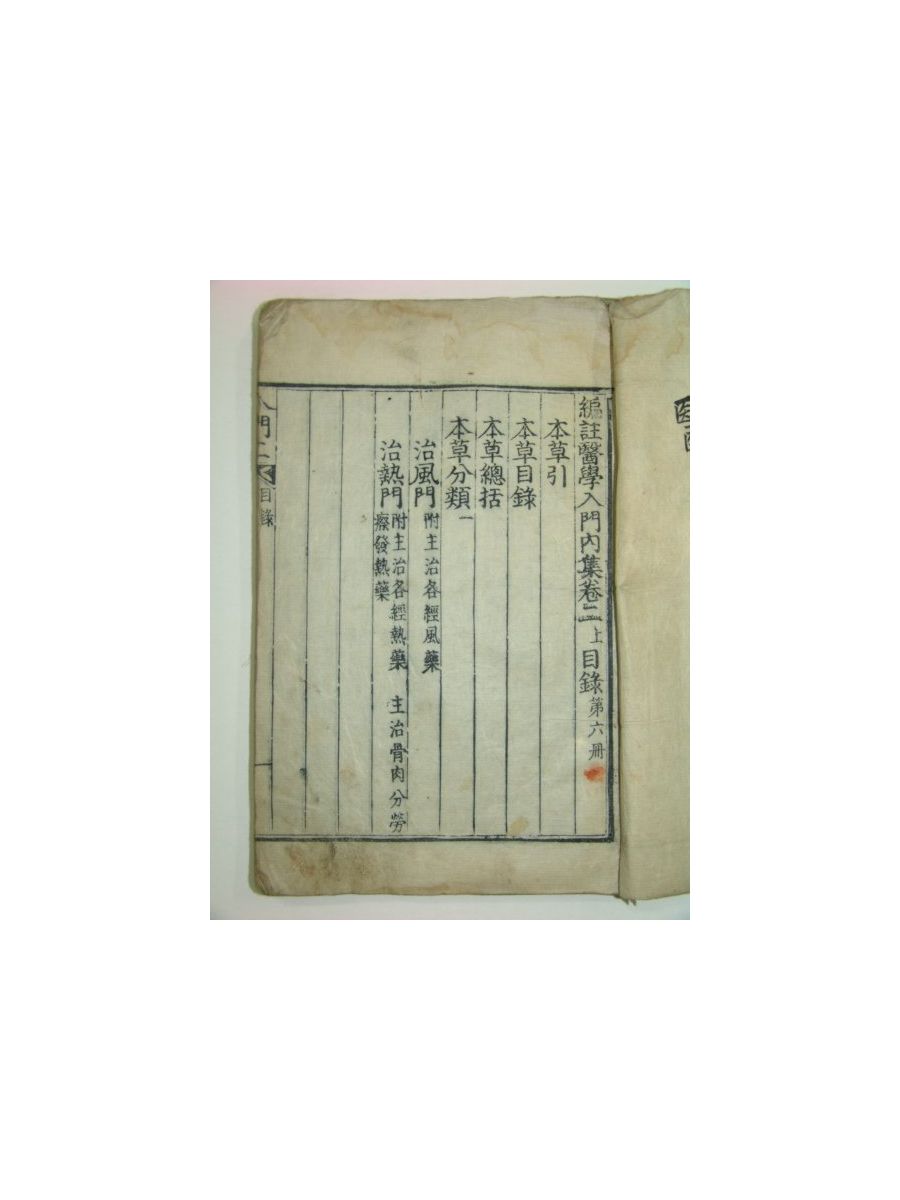 編註醫學入門內集卷二上目錄第六冊
本草引
本草目錄
本草總括
本草分類一
治風門附主治各經風藥
治熱門附主治各經熱藥 主治骨肉分勞
瘵發熱藥
門二
目錄